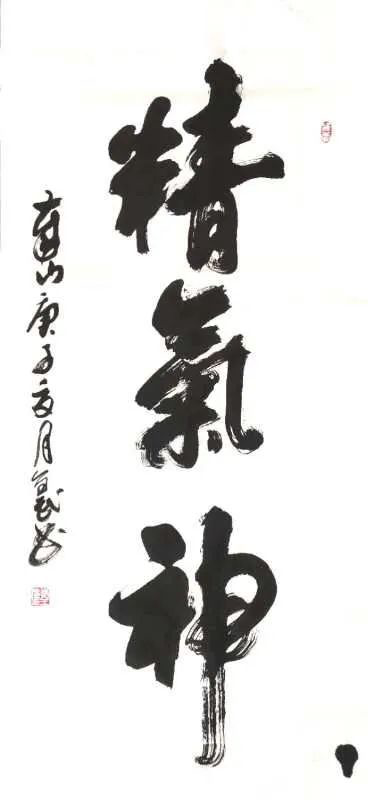 精氣神
庚子夏月